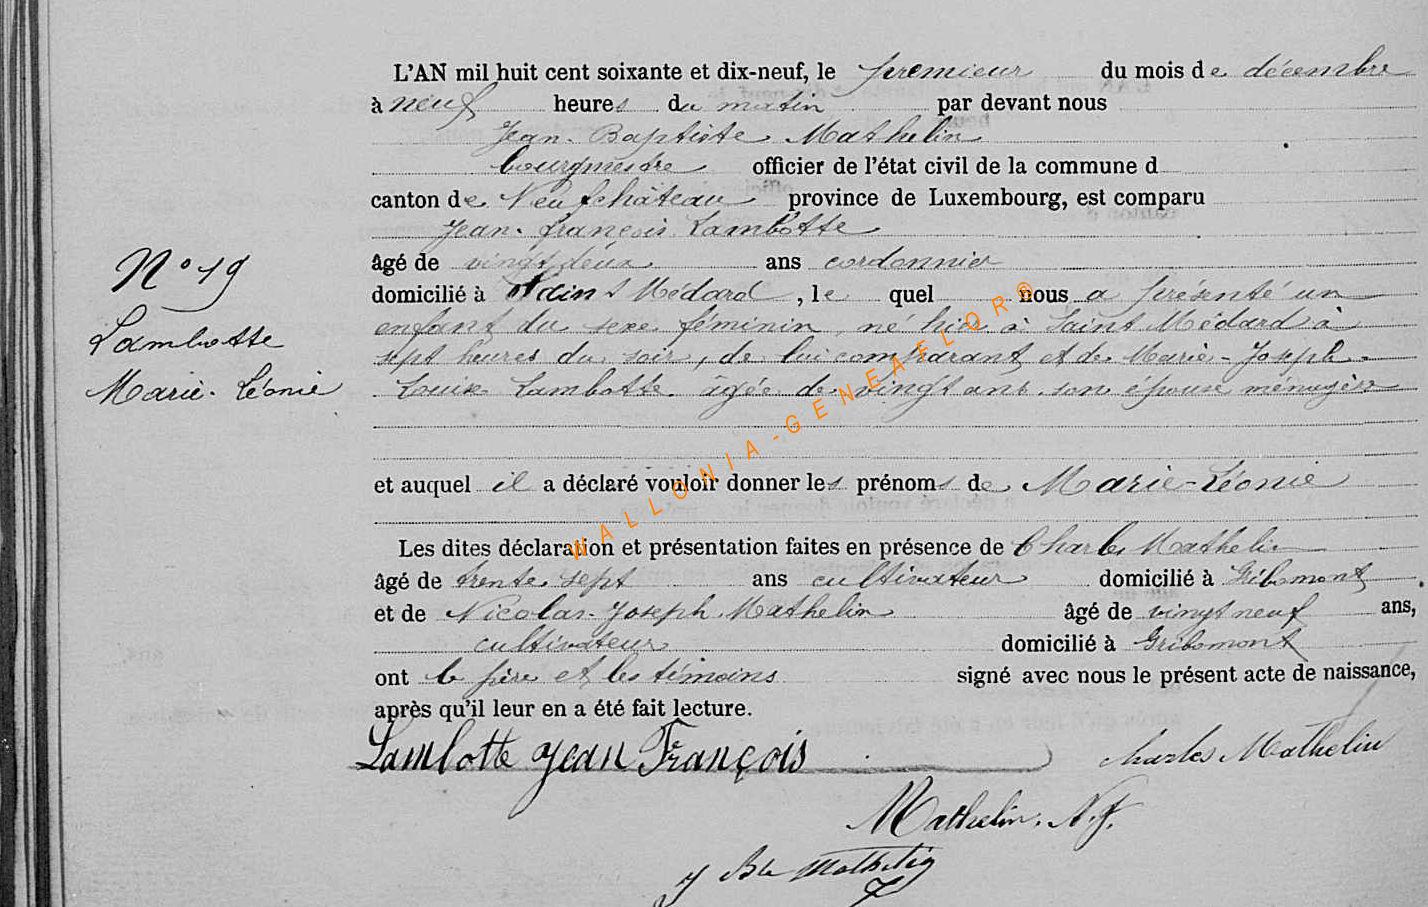 L'AN mil huit cent soixante et dix-neuf, le premieur du mois de décembre
à neuf heures du matin par devant nous
Jean-Baptiste Mathelin
bourgmestre officier de l'état civil de la commune d
canton de Neufchâteau province de Luxembourg, est comparu
Jean-françois Lambotte
âgé de vingt deux ans cordonnier
N° 19
domicilié à Saint Médard, le quel nous a présenté un
Lambotte
enfant du sexe féminin né hier à Saint Médard à
sept heures du soir, de lui comparant et de Marie-Joseph
Marie-Léonie
Louise Lambotte âgée de vingt ans son épouse ménagère
et auquel il a déclaré vouloir donner les prénoms de Marie-Léonie
Les dites déclaration et présentation faites en présence de Charles Mathelin
âgé de trente sept ans cultivateur domicilié à Gribomont
et de Nicolas-Joseph Mathelin âgé de vingt neuf ans,
cultivateur domicilié à Gribomont
ont le père et les témoins signé avec nous le présent acte de naissance,
après qu'il leur en a été fait lecture.
Lambotte Jean François
Charles Mathelin
Mathelin. N. J.
J Bte Mathelin
WALLONIA-GENEAFLOR®